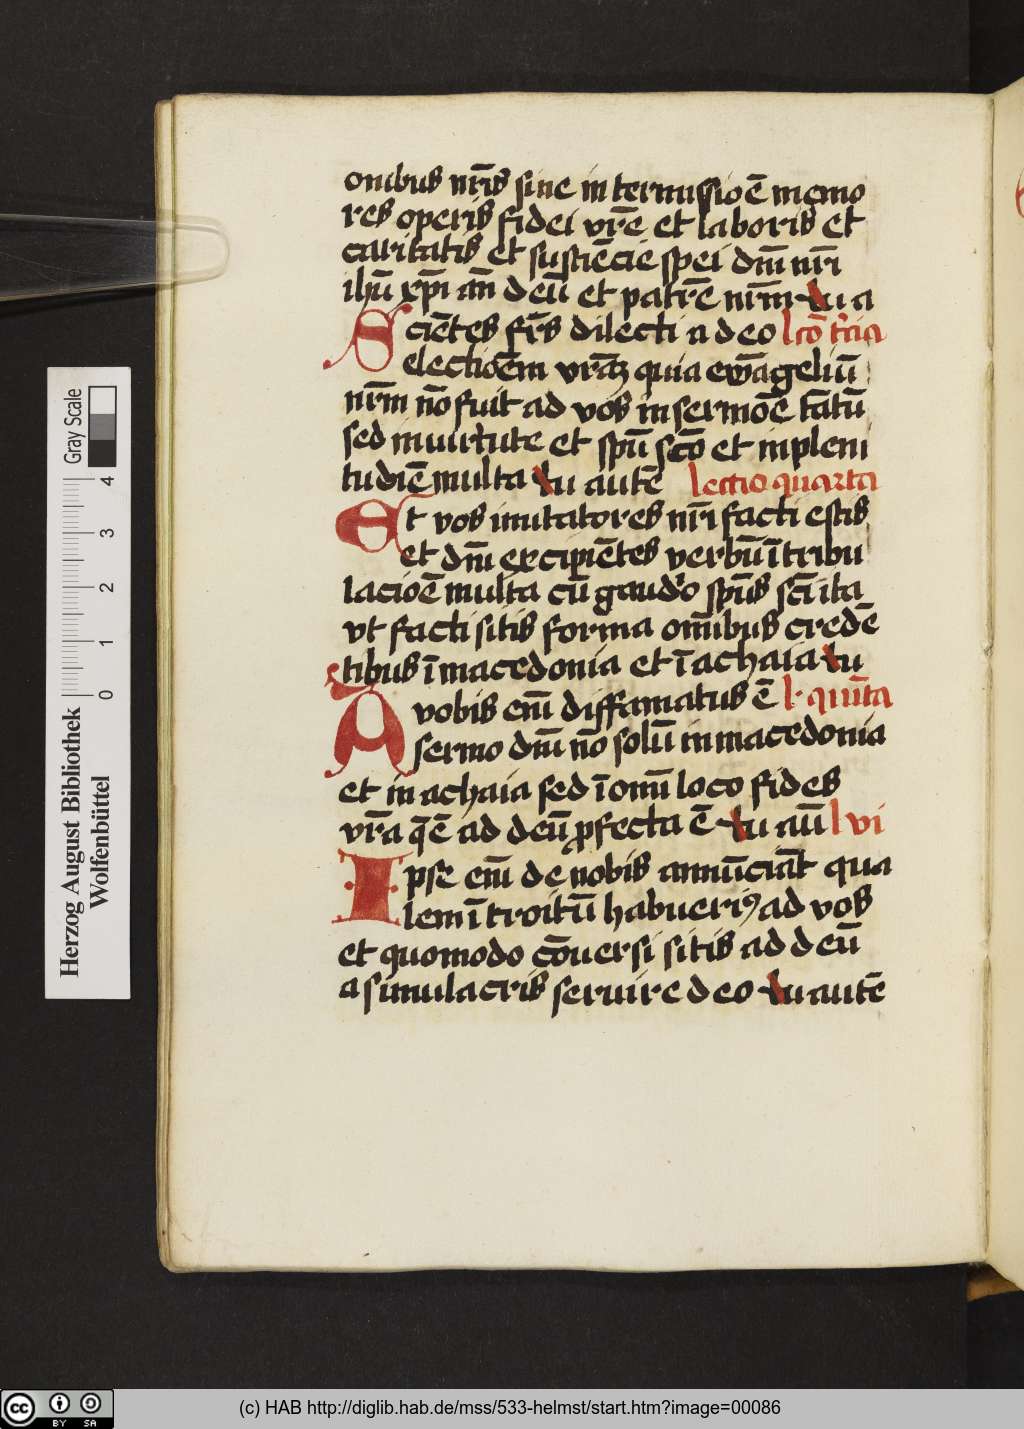 onibus nr̄is sine intermissiōe memo
res operis fidei vrē et laboris et
caritatis et sustiēcie spei dn̄i nr̄i
ihū xp̄i an̄ deū et patrē nrm̄ tu a
Scientēs fr̄s dilecti a deo lcō t̄cia
electiōem vrāꝫ quia ewāgeliū
nrm̄ nō fuit ad vos in sermōe tātū
sed in uirtute et spū scō et in pleni
tudiē multa tu autē lectio quarta
Et vos imitatores nr̄i facti estis
et dn̄i excipiētes verbū ī tribu
lacioē multa cū gaudio spūs scī ita
vt facti sitis forma om̄ibus credē
tibus ī macedonia et ī achaia tu
A vobis em̄ diffamatus ē l. quīta
sermo dn̄i nō solū in macedonia
et in achaia sed ī omī loco fides
vrā q̄ ē ad deū ꝓfecta ē tu aū l vi
Ipse em̄ de nobis annūciāt qua
lem ītroitū habuerīꝰ ad vos
et quomodo cōuersi sitis ad deū
a simulacris seruire deo tu autē
Gray Scale
4
3
2
1
0
Herzog August Bibliothek
Wolfenbüttel
cc BY SA
(c) HAB http://diglib.hab.de/mss/533-helmst/start.htm?image=00086